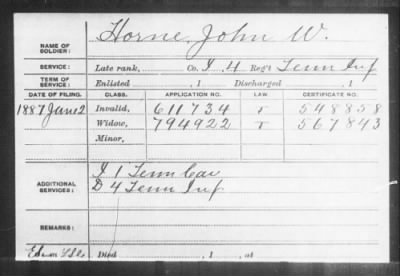 Horne, John W.
NAME OF SOLDIER:
SERVICE: Late rank, Co. I, 4 Reg't Tenn Inf
TERM OF SERVICE: Enlisted , 1 Discharged , 1
DATE OF FILING. CLASS. APPLICATION NO. LAW. CERTIFICATE NO.
1887 June 2 Invalid, 611734 r 548858
Widow, 794922 r 567843
Minor,
ADDITIONAL SERVICES: I 1 Tenn Cav
D 4 Tenn Inf
REMARKS:
Died , 1 , at